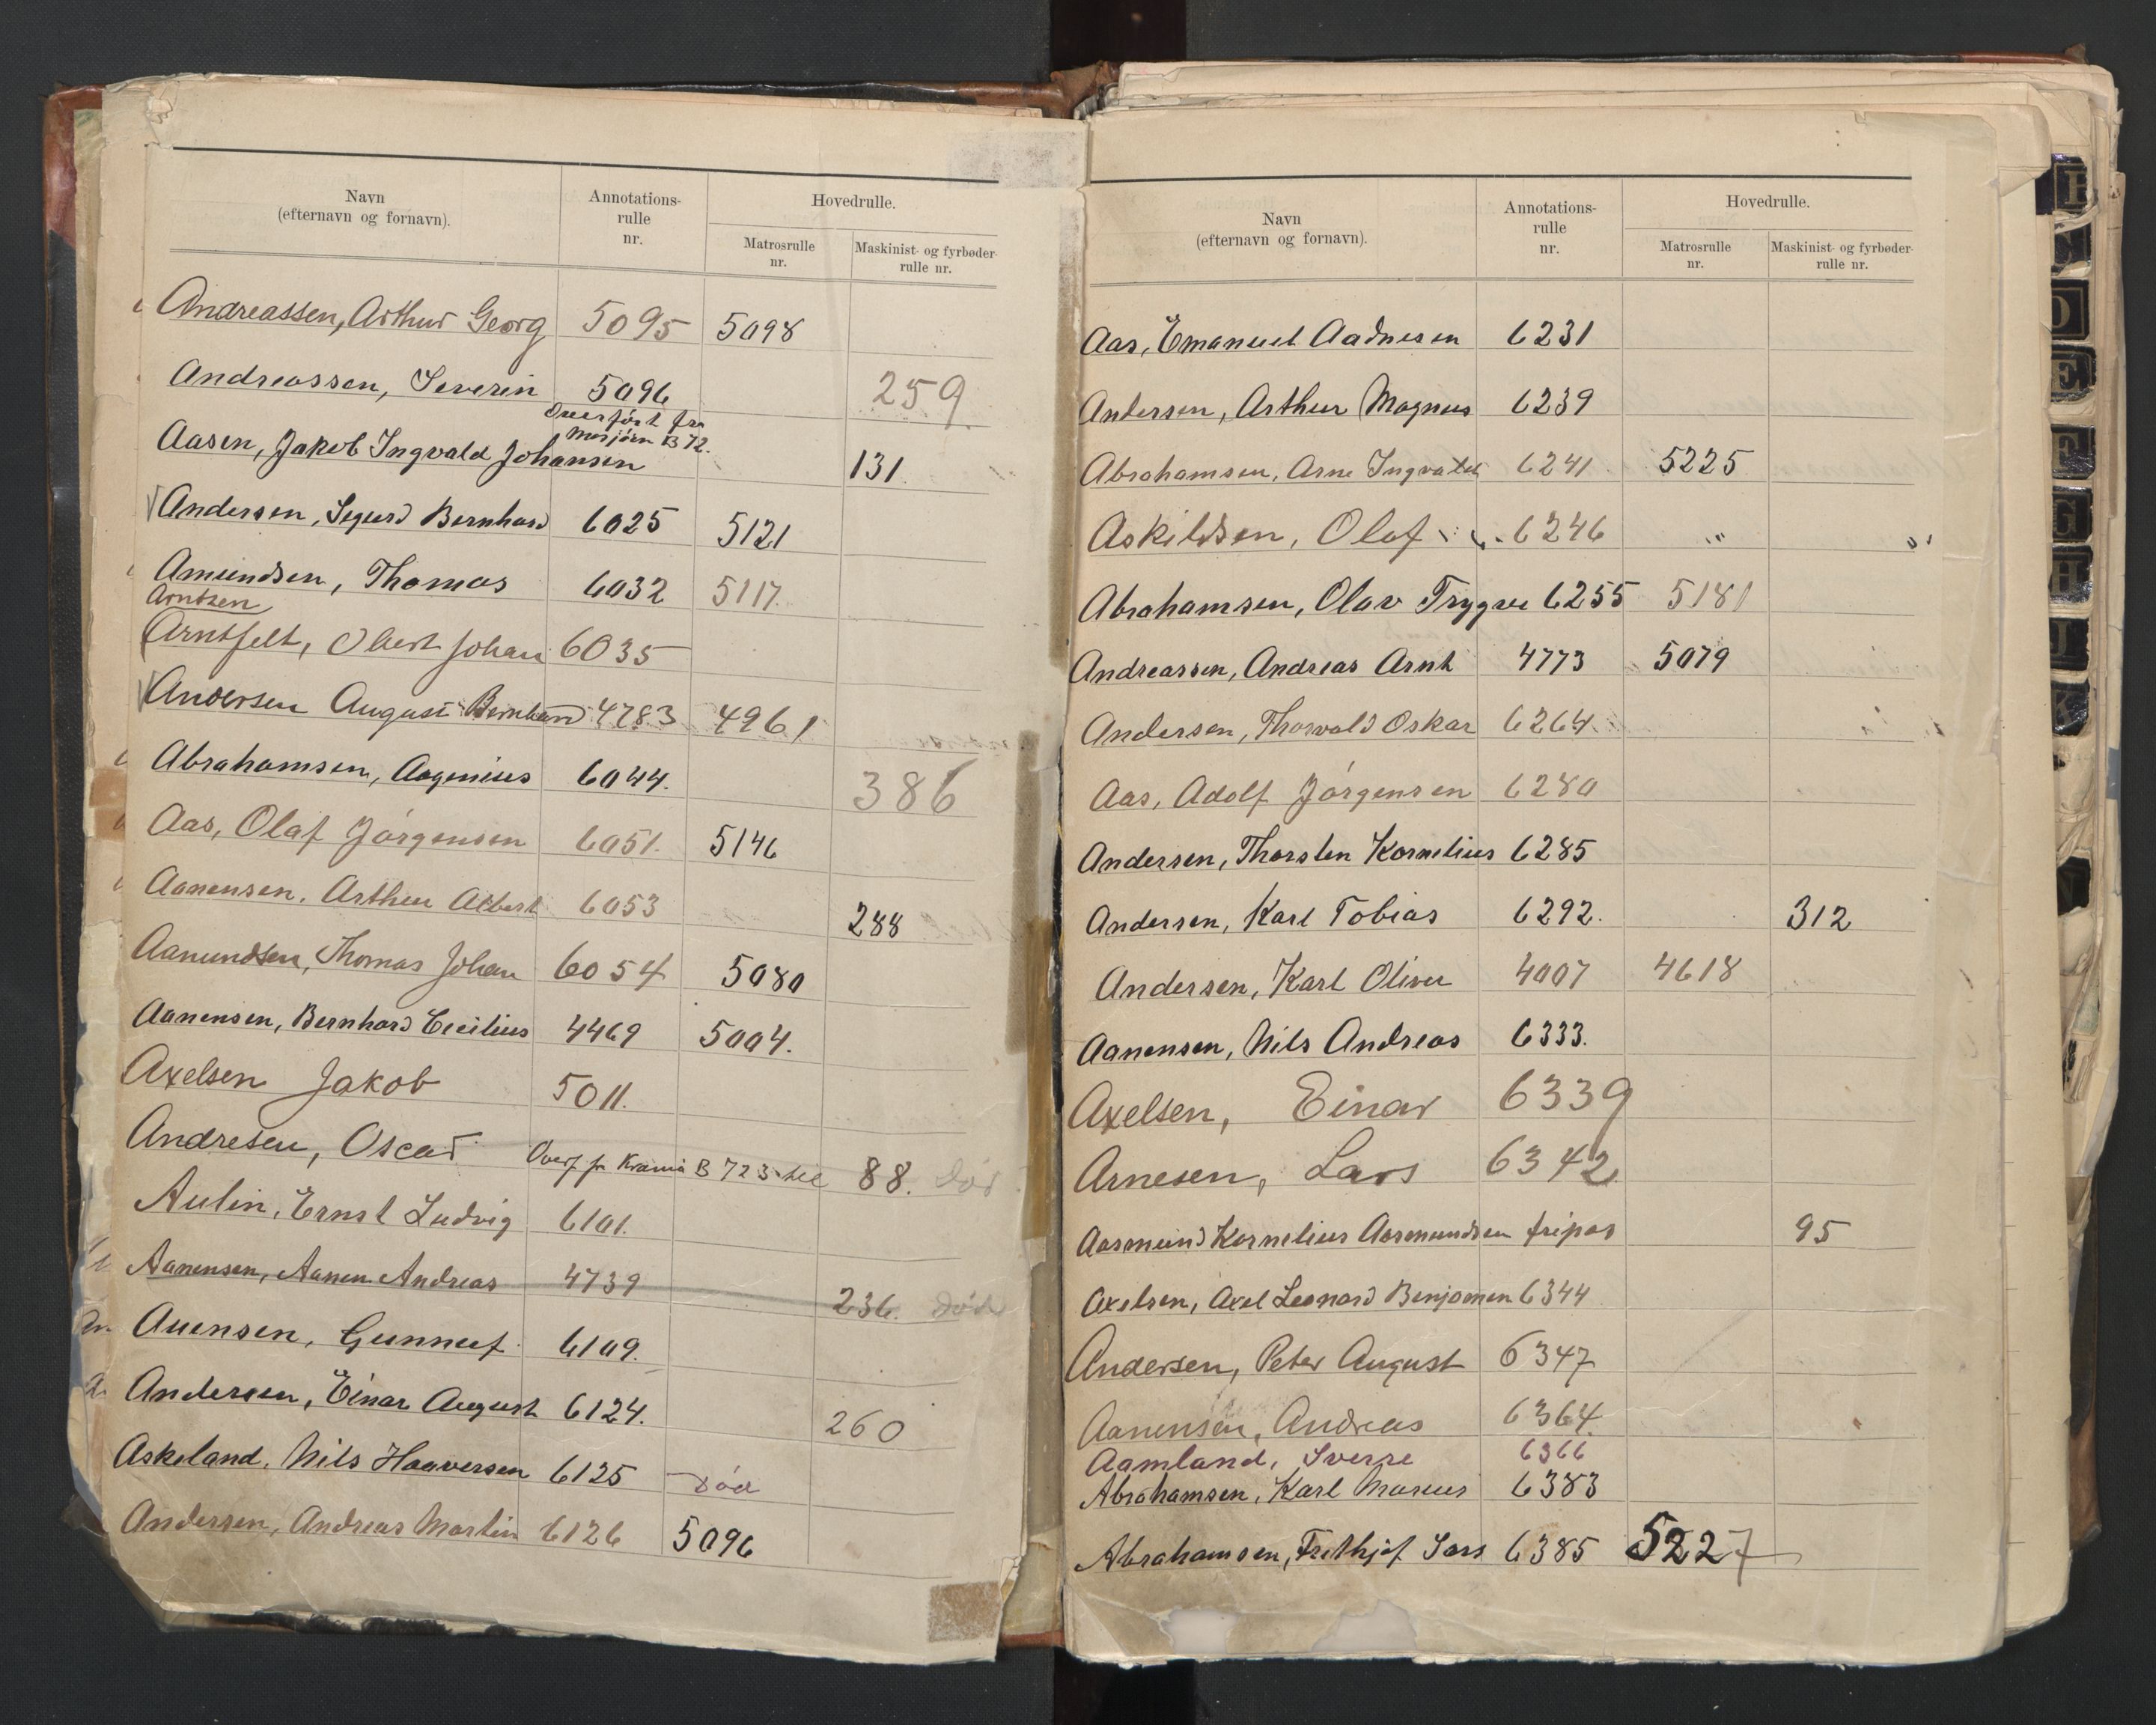 Navn
(efternavn og fornavn).
Annotations-
rulle
nr.
Hovedrulle.
Matrosrulle
nr.
Maskinist- og fyrbøder-
rulle nr.
Andreassen, Arthur Georg 5095 5098
Andreassen, Severin 5096 259
Overført fra
Mosjøen B 72.
Aasen, Jakob Ingvald Johansen 131
Andersen, Sigurd Bernhard 6025 5121
Amundsen, Thomas 6032 5117.
Arntsen
Arntfelt, Obert Johan 6035
Andersen August Bernhard 4783 4961
Abrahamsen, Aagenius 6044. 386
Aas, Olaf Jørgensen 6051. 5146
Aanensen, Arthur Albert 6053 288
Aanundsen, Thomas Johan 6054 5080
Aanensen, Bernhard Cecilius 4469 5004.
Axelsen Jakob 5011.
Andresen, Oscar Overf fr Krania B 723 88. Død
Aulin, Ernst Ludvig 6101.
Aanensen, Aanen Andreas 4739 236. Død
Auensen, Gunnuf 6109.
Andersen, Einar August 6124. 260
Askeland, Nils Haaversen 6125 Død
Andersen, Andreas Martin 6126 5096
Navn
(efternavn og fornavn).
Annotations-
rulle
nr.
Hovedrulle.
Matrosrulle
nr.
Maskinist- og fyrbøder-
rulle nr.
Aas, Emanuel Aadnesen 6231
Andersen, Arthur Magnus 6239
Abrahamsen, Arne Ingvald 6241 5225
Askildsen, Olaf 6246
Abrahamsen, Olav Trygve 6255 5181
Andreassen, Andreas Arnt 4773 5079
Andersen, Thorvald Oskar 6264
Aas, Adolf Jørgensen 6280
Andersen, Thorsten Kornelius 6285
Andersen, Karl Tobias 6292. 312
Andersen, Karl Oliver 4007 4618
Aanensen, Nils Andreas 6333.
Axelsen, Einar 6339
Arnesen, Lars 6342
Aasmund Kornelius Aasmundsen fripas 95
Axelsen, Axel Leonard Benjamen 6344
Andersen, Peter August 6347
Aanensen, Andreas 6364.
Aamland, Sverre 6366
Abrahamsen, Karl Marius 6383
Abrahamsen, Frithjof Lars 6385 5227